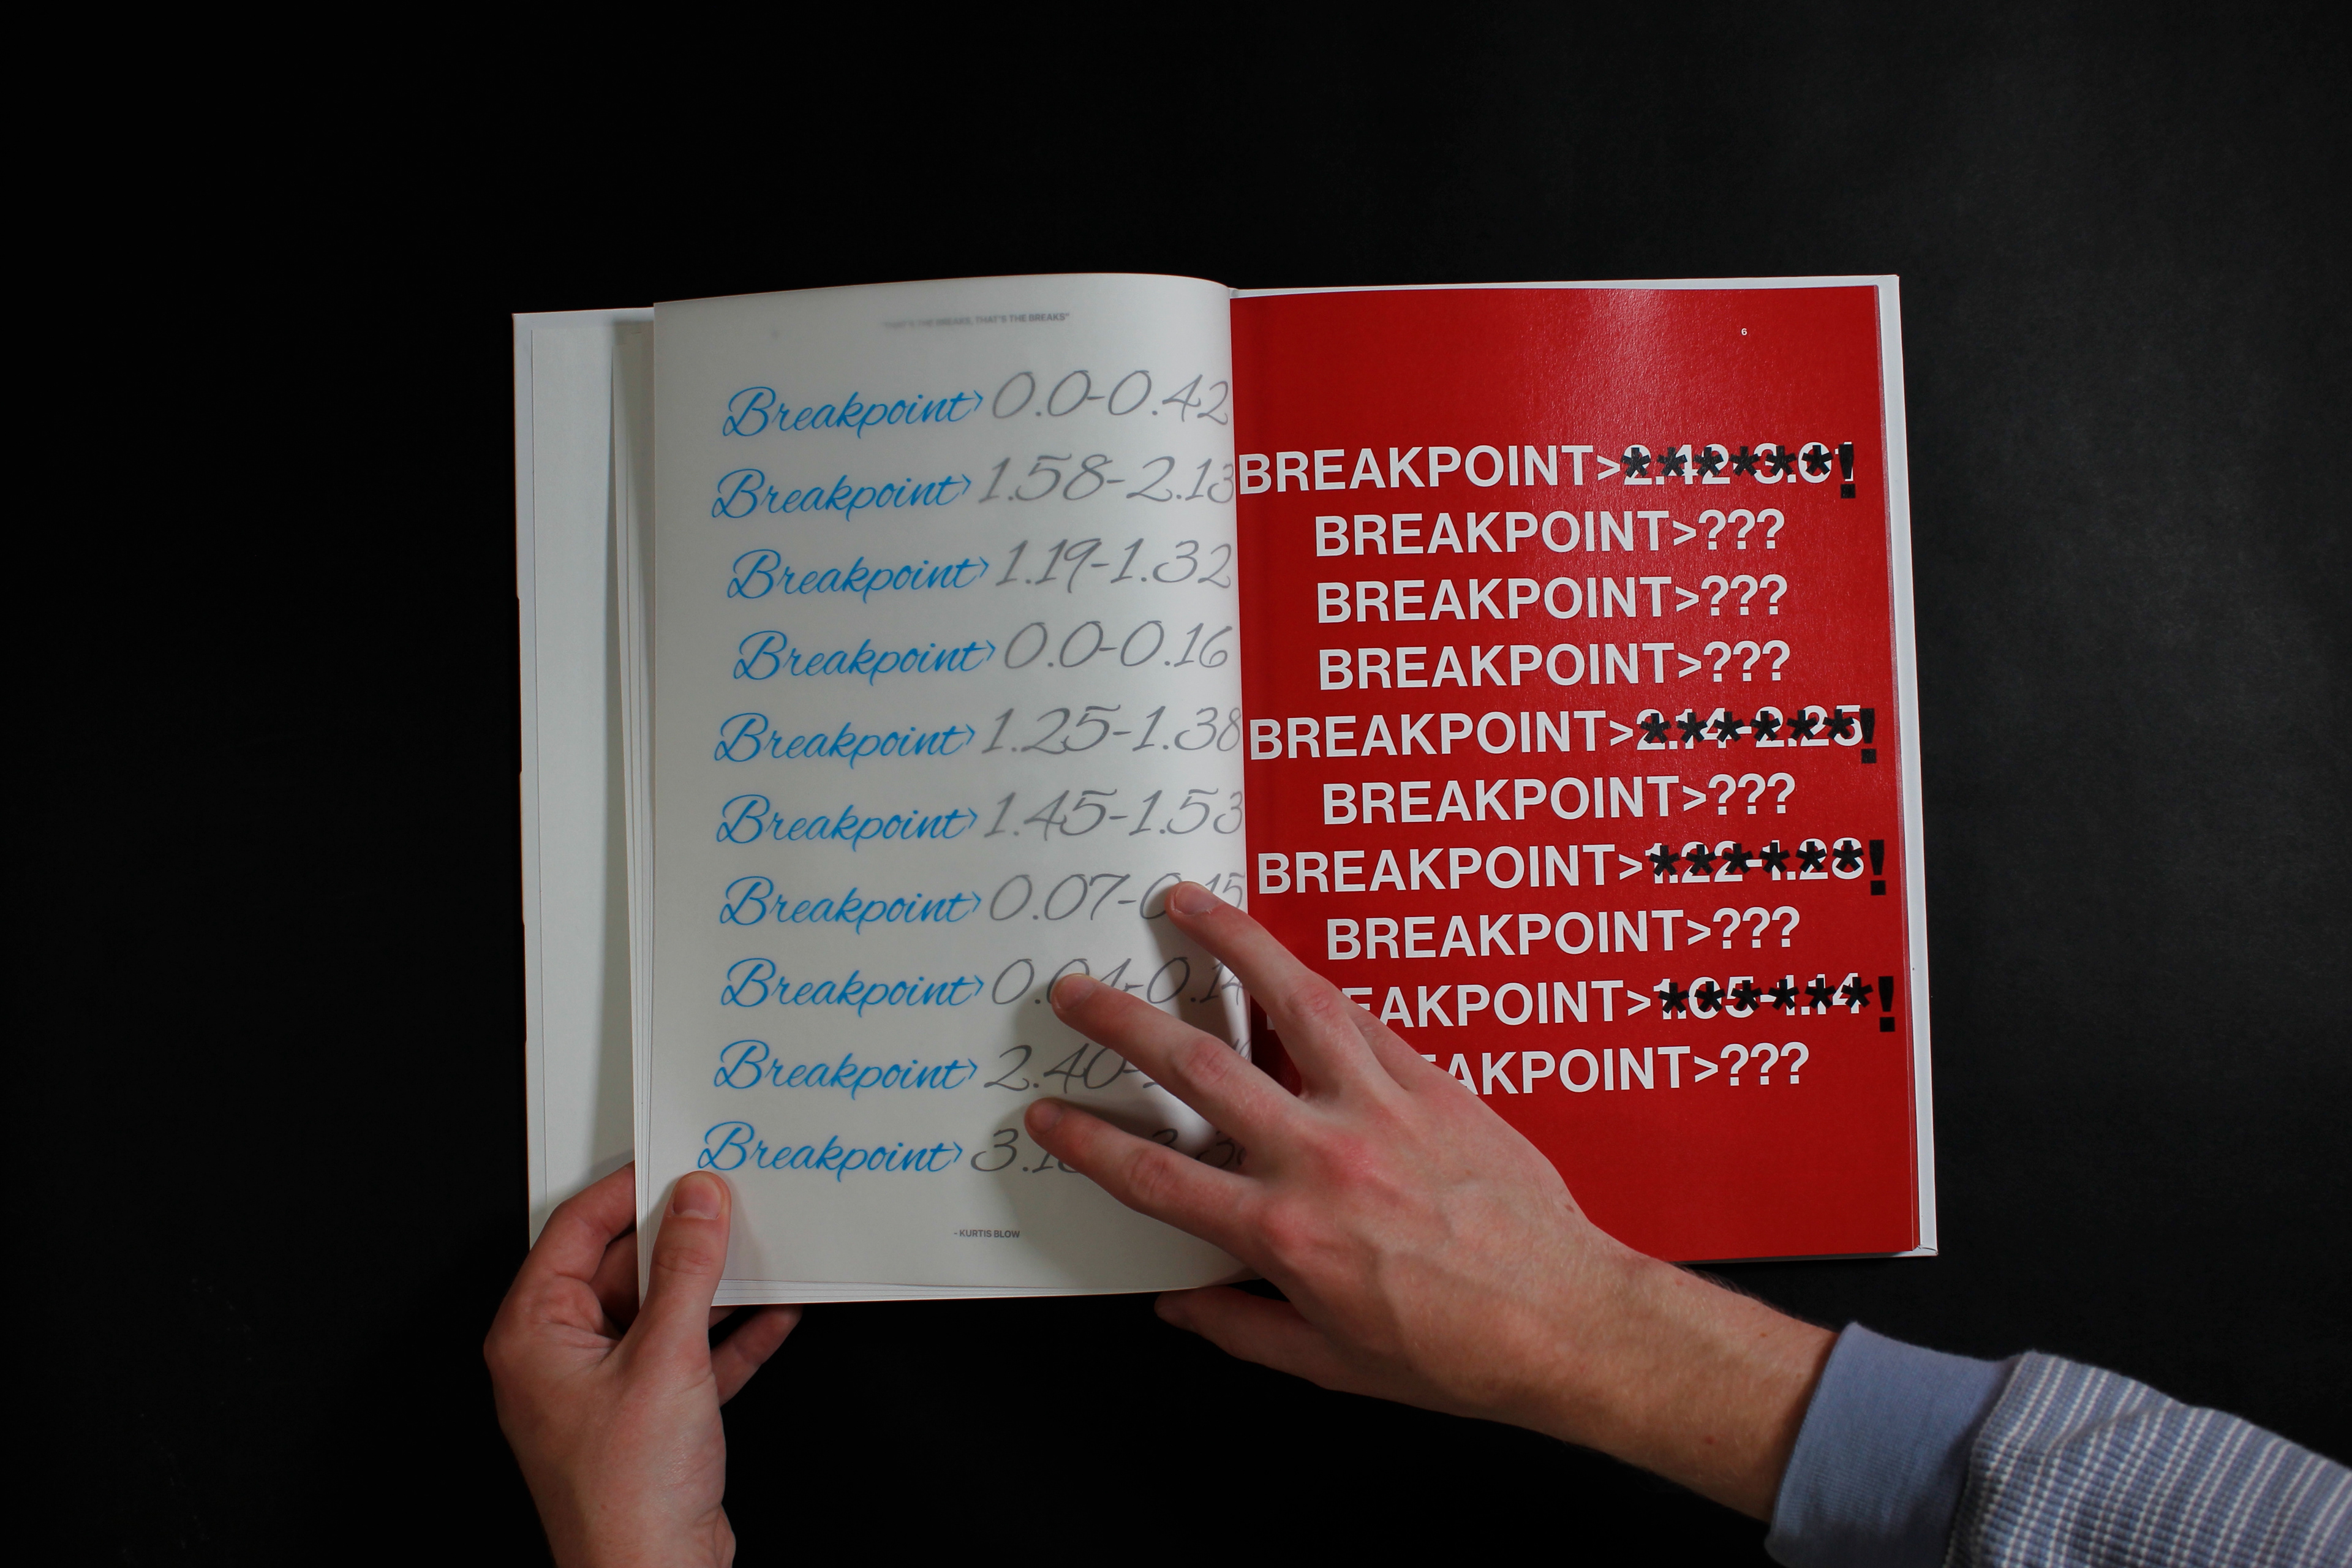 "THAT'S THE BREAKS, THAT'S THE BREAKS"
Breakpoint> 0.0-0.42
Breakpoint> 1.58-2.13
Breakpoint> 1.19-1.32
Breakpoint> 0.0-0.16
Breakpoint> 1.25-1.38
Breakpoint> 1.45-1.53
Breakpoint> 0.07-0.15
Breakpoint>
Breakpoint>
Breakpoint>
- KURTIS BLOW
6
BREAKPOINT>******!
BREAKPOINT>???
BREAKPOINT>???
BREAKPOINT>???
BREAKPOINT>2.14-2.25!
BREAKPOINT>???
BREAKPOINT>1.22-1.28!
BREAKPOINT>???
EAKPOINT>1.05-1.14!
AKPOINT>???